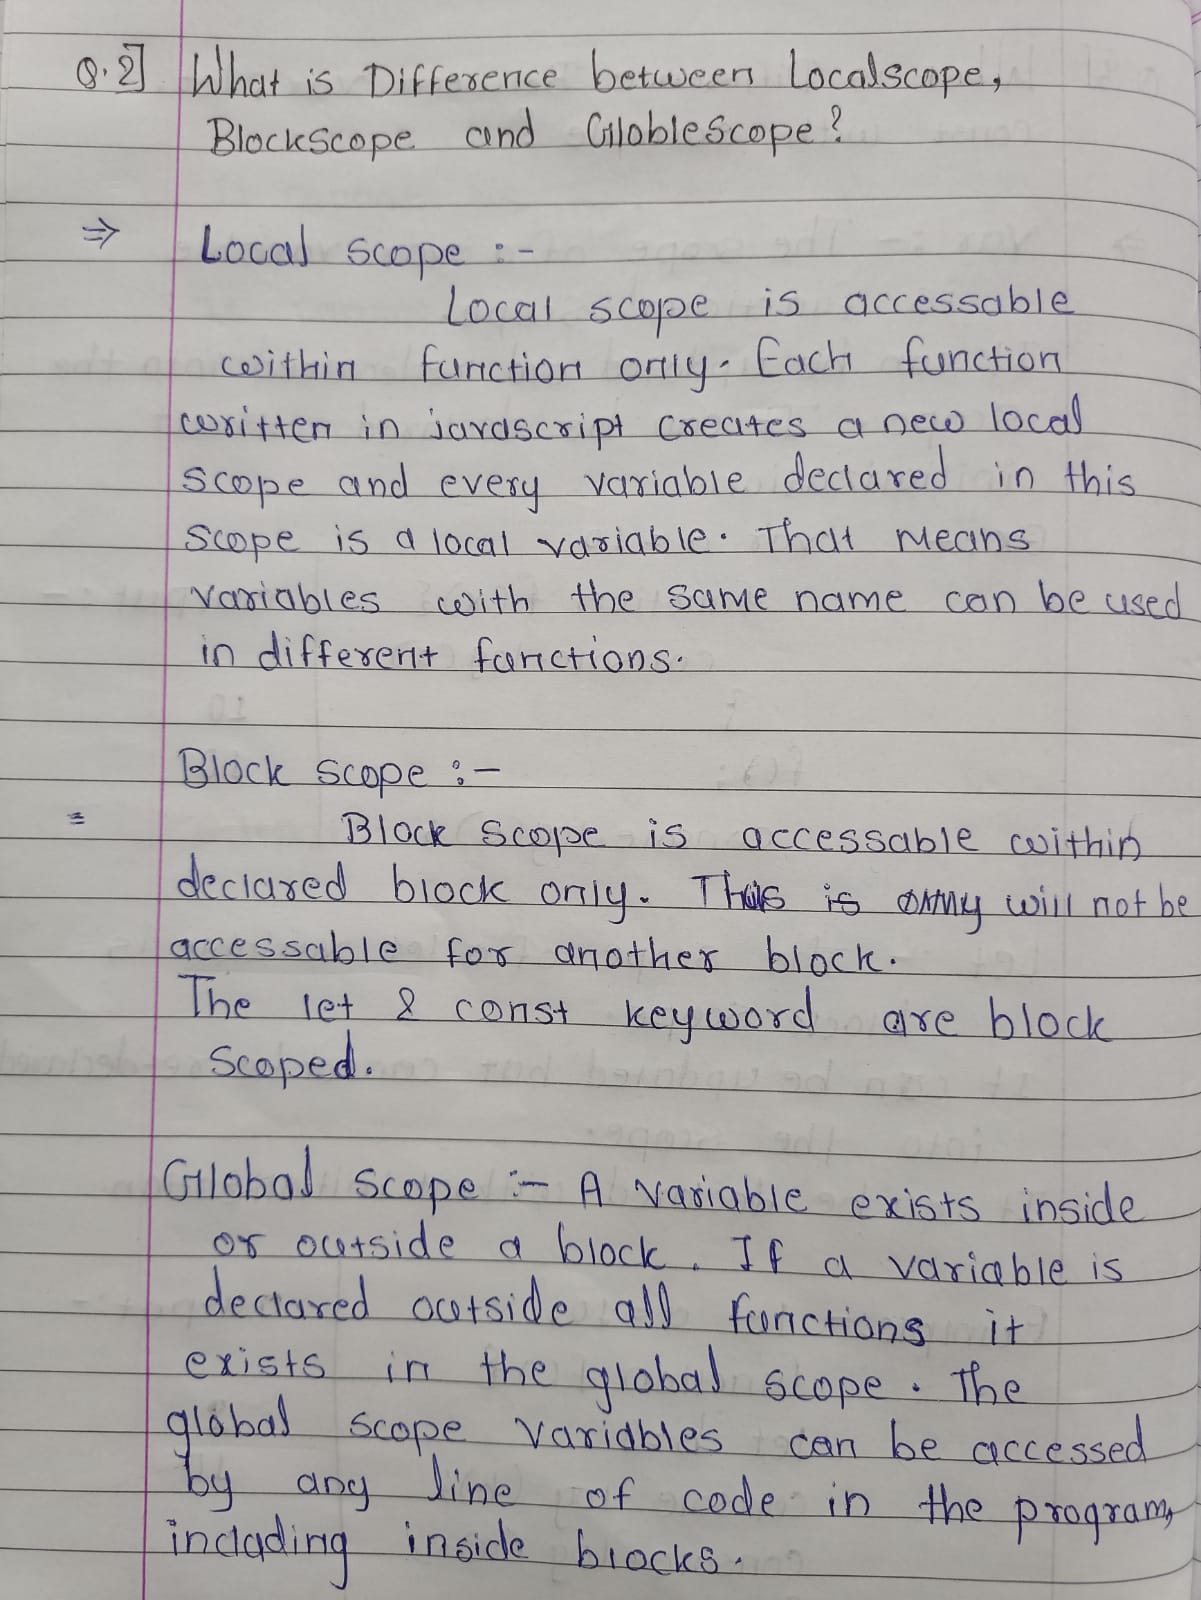 Q.2] What is Difference between Localscope,
BlockScope and GlobleScope?
⇒ Local scope :-
Local scope is accessable
within function only. Each function
written in javascript creates a new local
scope and every variable declared in this
scope is a local variable. That means
variables with the same name can be used
in different functions.
Block scope :-
= Block scope is accessable within
declared block only. This is will not be
accessable for another block.
The let & const keyword are block
scoped.
Global scope :- A variable exists inside
or outside a block. If a variable is
declared outside all functions it
exists in the global scope. The
global scope variables can be accessed
by any line of code in the program,
including inside blocks.